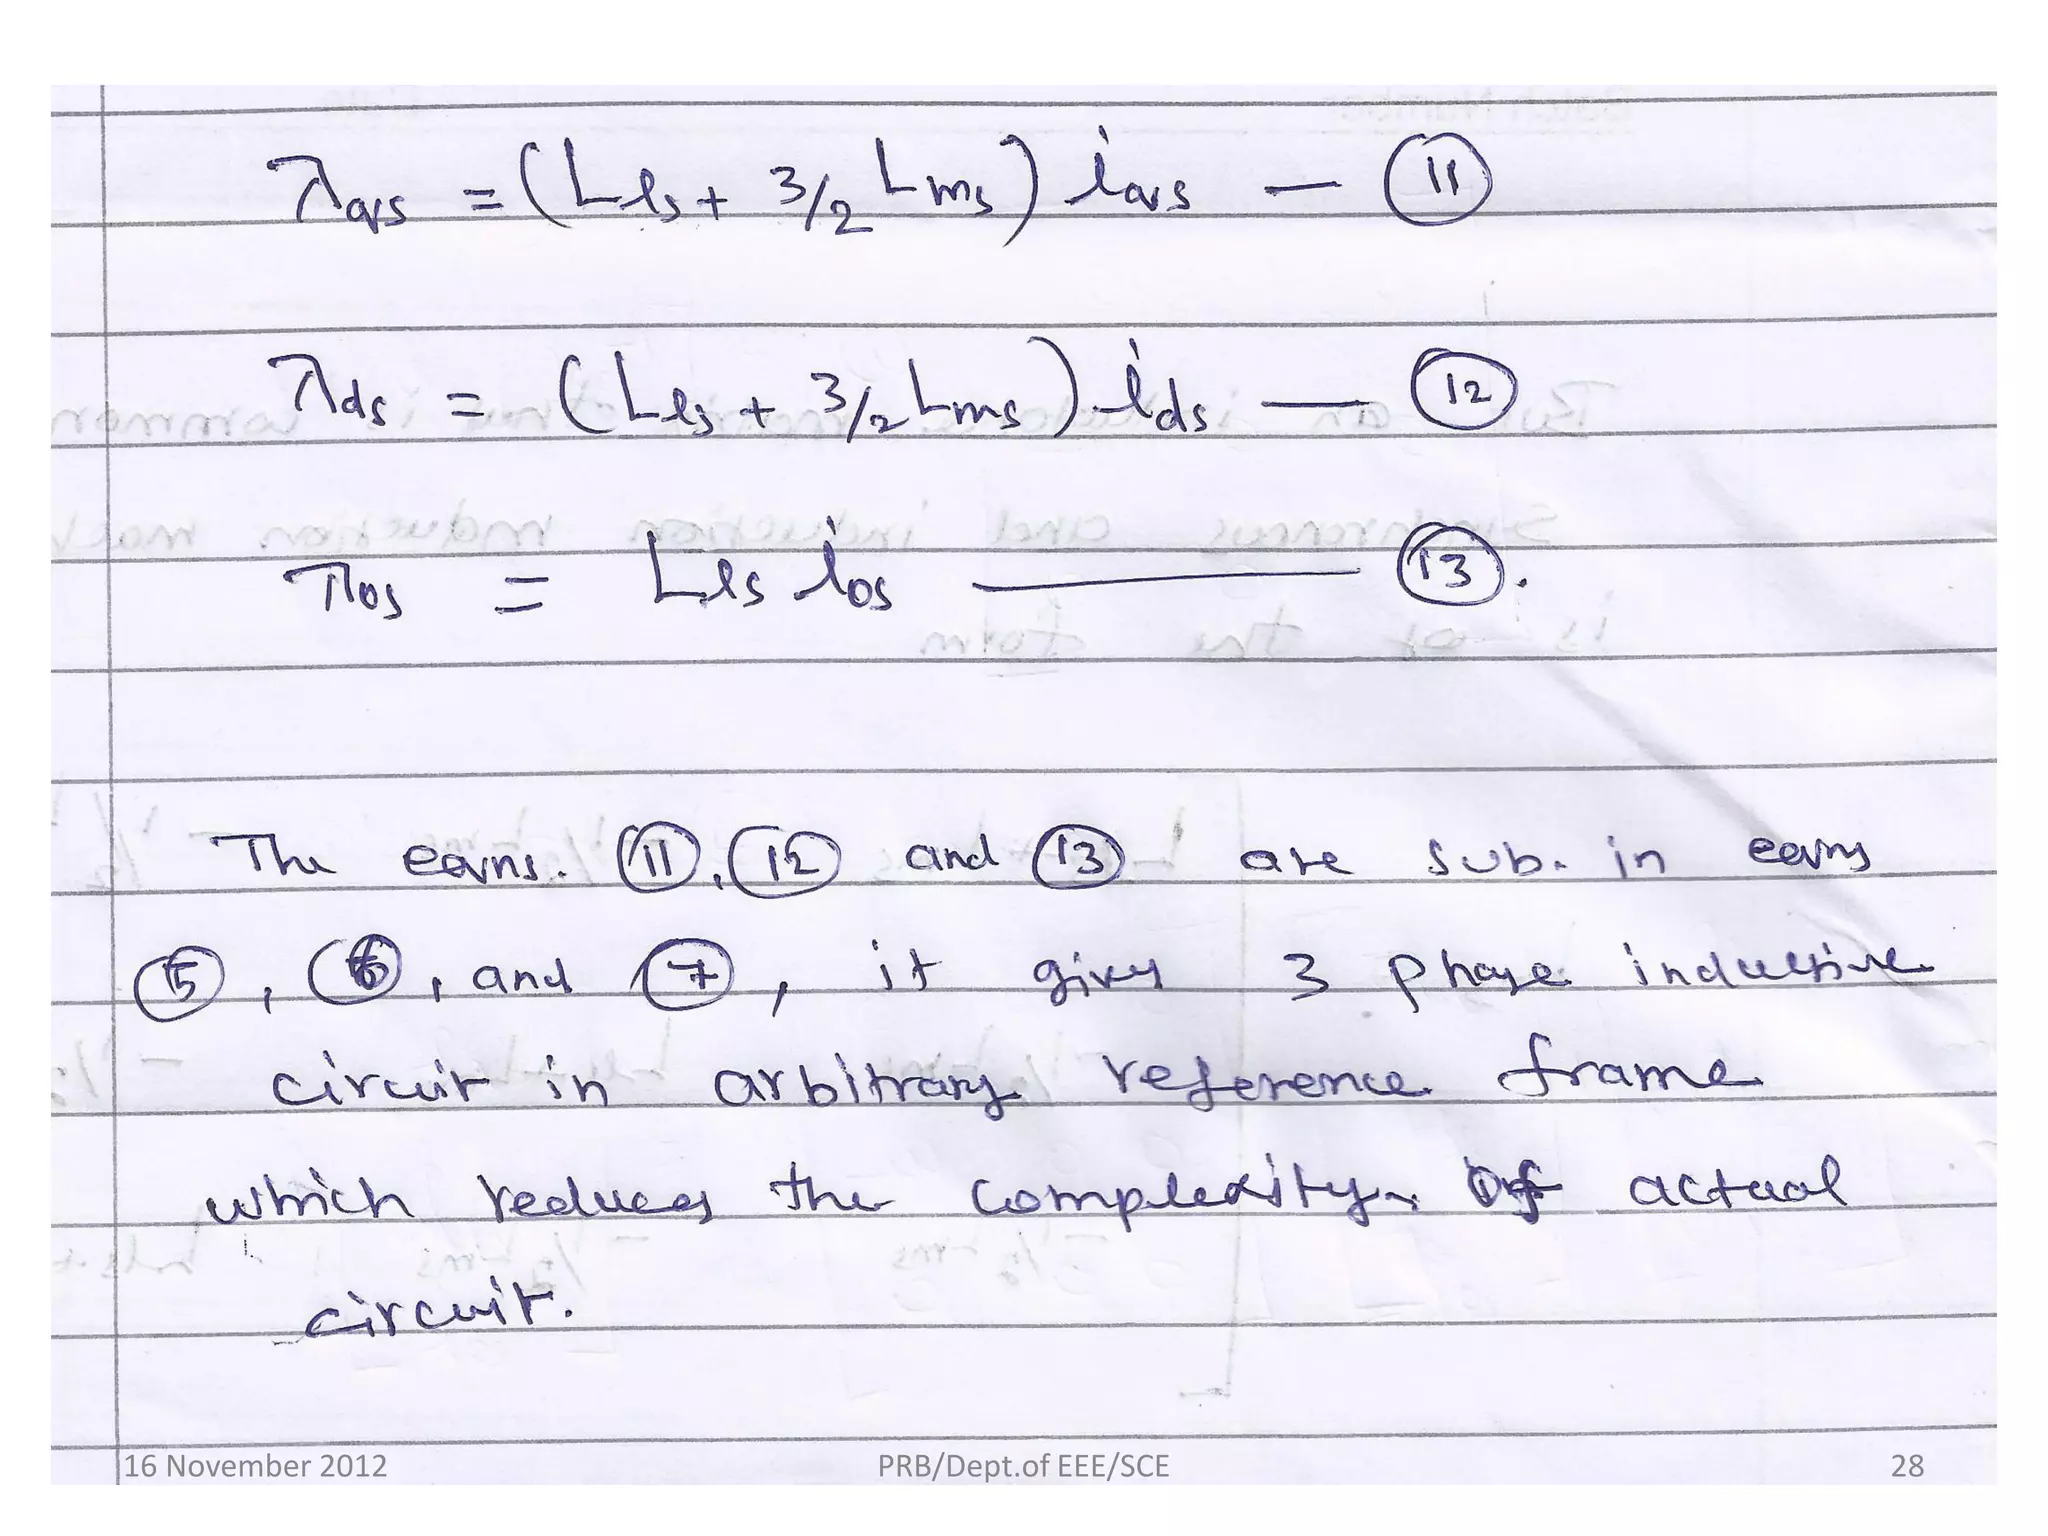 λqs = (Lls + 3/2 Lms) iqs — 11
λds = (Lls + 3/2 Lms) ids — 12
λos = Lls ios — 13.
The eqns. 11, 12 and 13 are sub. in eqns
5, 6, and 7, it gives 3 phase inductive
circuit in arbitrary reference frame
which reduces the complexity of actual
circuit.
16 November 2012 PRB/Dept.of EEE/SCE 28